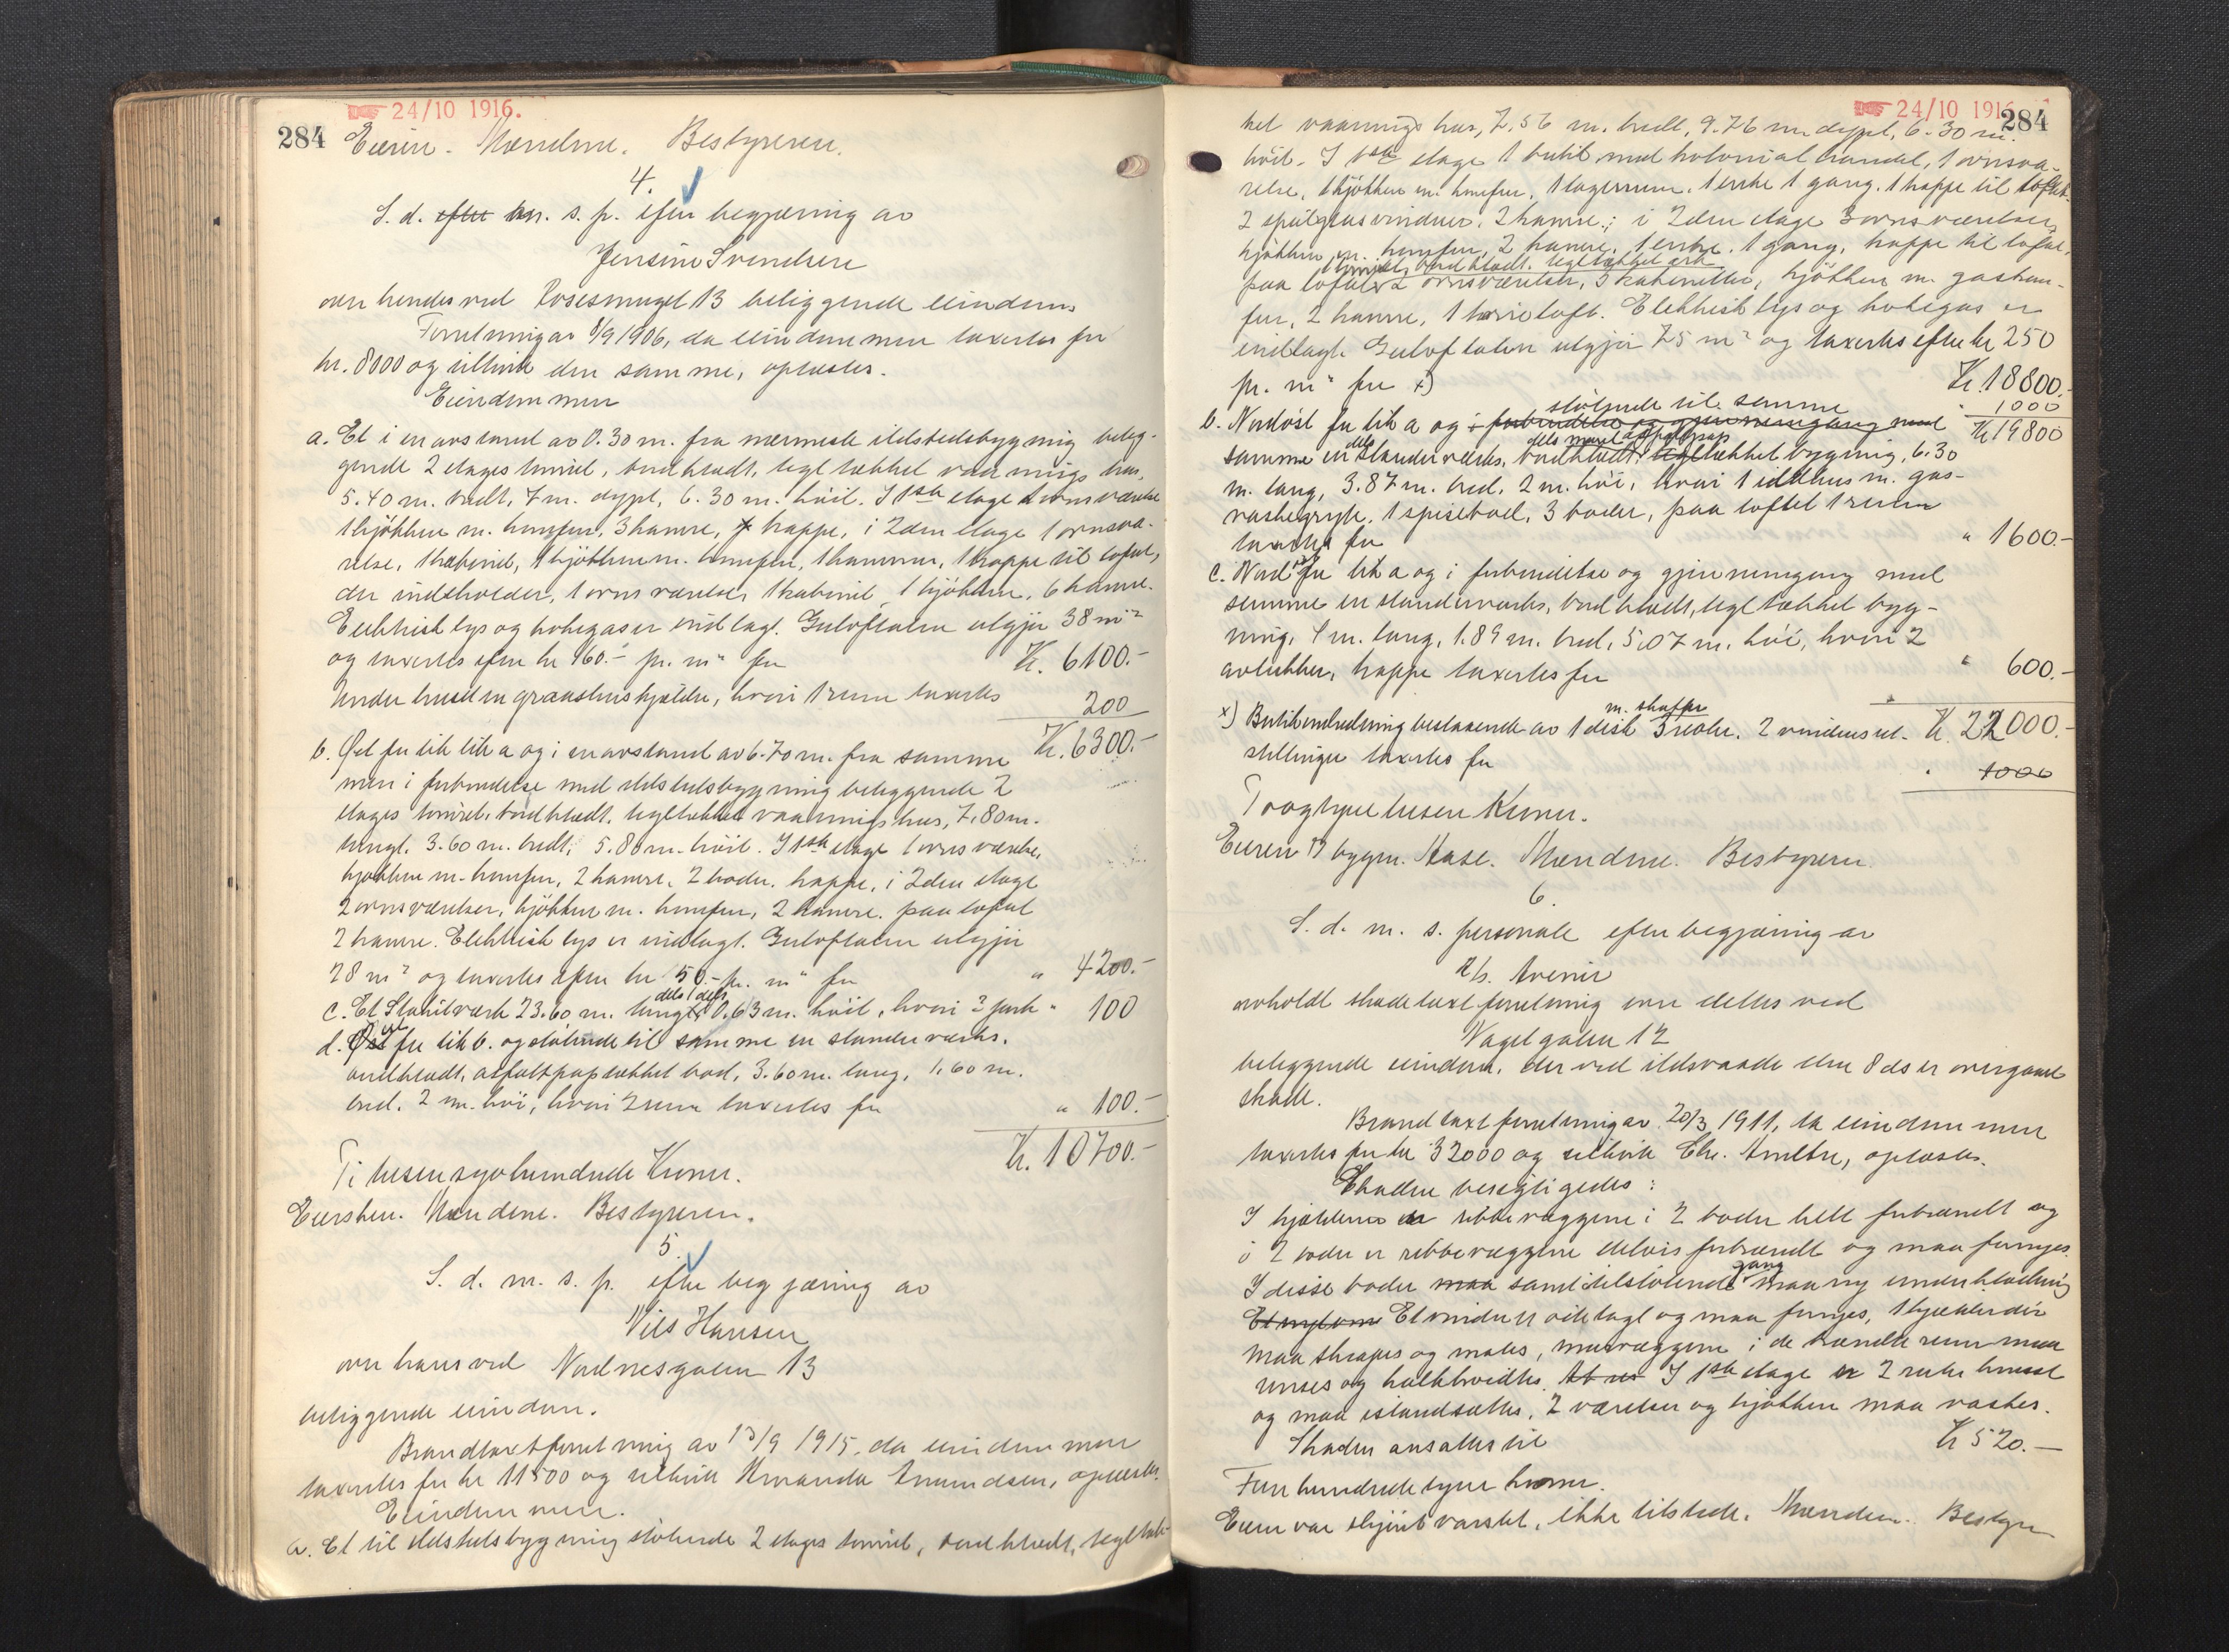 24/10 1916.
284 Eieren. Mændene. Bestyreren.
4.
S. d. m. s. p. efter begjæring av
Jensine Svendsen
over hendes ved Rosesmuget 13 beliggende eiendom.
Forretning av 8/9 1906, da eiendommen taxertes for
kr. 8000 og tilhørte den samme, oplæstes.
Eiendommen
a. Et i en avstand av 0.30 m. fra nærmeste ildstedsbygning belig-
gende 2 etages tømret, bordklædt, tegltækket vaaningshus,
5.40 m. bredt, 7 m. dypt, 6.30 m. høit. I 1ste etage 1 ovnsværelse
1 kjøkken m. komfur, 3 kamre, trappe, i 2den etage 1 ovnsvæ-
relse, 1 kabinet, 1 kjøkken m. komfur, 1 kammer, 1 trappe til loftet,
der indeholder, 1 ovnsværelse, 1 kabinet, 1 kjøkken, 6 kamre.
Elektrisk lys og kokegas er indlagt. Gulvflaten utgjør 38 m²
og taxertes efter kr 160.- pr. m² for Kr. 6100.-
Under huset en graastenskjælder, hvori 1 rum taxertes 200
Kr. 6300.-
b. Øst for litr a og i en avstand av 6.70 m. fra samme
men i forbindelse med ildstedsbygning beliggende 2
etages tømret, bordklædt, tegltækket vaaningshus, 7.80 m.
langt, 3.60 m. bredt, 5.80 m. høit. I 1ste etage 1 ovnsværelse,
kjøkken m. komfur, 2 kamre, 2 boder, trappe, i 2den etage
2 ovnsværelser, kjøkken m. komfur, 2 kamre, paa loftet
2 kamre. Elektrisk lys er indlagt. Gulvflaten utgjør
28 m² og taxertes efter kr 150.- pr. m² for " 4200.-
c. Et Stakitværk 23.60 m. langt, dels 1 dels 0.63 m. høit, hvori 2 porte " 100
d. Øst for litr b. og støtende til samme en standerverks,
bordklædt, asfaltpaptækket bod, 3.60 m. lang, 1.60 m.
bred, 2 m. høi, hvori 2 rum taxertes for " 100.-
Kr. 10700.-
Ti tusen syvhundrede Kroner.
Eiersken. Mændene. Bestyreren.
5.
S. d. m. s. p. efter begjæring av
Nils Hansen
over hans ved Nordnesgaten 13
beliggende eiendom.
Brandtaxtforretning av 13/9 1915, da eiendommen
taxertes for kr 11500 og tilhørte Amundsen, oplæstes.
Eiendommen.
a. Et til ildstedsbygning støtende 2 etages tømret, bordklædt, tegltæk-
24/10 1916.
284
ket vaaningshus, 7.56 m. bredt, 9.76 m. dypt, 6.30 m.
høit. I 1ste etage 1 butik med kolonialhandel, 1 ovnsvæ-
relse, 1 kjøkken m. komfur, 1 lagerrum, 1 entre 1 gang, 1 trappe til loftet.
2 speilglasvinduer, 2 kamre; i 2den etage 3 ovnsværelser,
kjøkken m. komfur, 2 kamre, 1 entre, 1 gang, trappe til loftet,
1 tømret, bordklædt, tegltækket ark
paa loftet 2 ovnsværelser, 3 kabinetter, kjøkken m. gaskom-
fur, 2 kamre, 1 tørreloft. Elektrisk lys og kokegas er
indlagt. Gulvflaten utgjør 75 m² og taxertes efter kr 250
pr. m² for x) Kr. 18800.-
" 1000
Kr 19800
støtende til samme
b. Nordøst for litr a og i forbindelse og gjennemgang med
dels dels med asfaltpap
samme en standerverks, bordklædt, tegltækket bygning, 6.30
m. lang, 3.87 m. bred, 2 m. høi, hvori 1 ildehus m. gas-
vaskegryte, 1 spisebod, 3 boder, paa loftet 1 rum
taxertes for " 1600.-
c. Nord for litr a og i forbindelse og gjennemgang med
samme en standerverks, bordklædt, tegltækket byg-
ning, 4 m. lang, 1.89 m. bred, 5.07 m. høi, hvori 2
avlukker, trappe taxertes for " 600.-
Kr. 22000.-
x) Butikindredning bestaaende av 1 disk m. skuffer 3 reoler, 2 vindusut-
stillinger taxertes for " 1000
To og tyve tusen Kroner.
Eieren v bygm. Aase. Mændene. Bestyreren.
6.
S. d. m. s. personale efter begjæring av
A/s. Avenir
avholdt skadetaxtforretning over dettes ved
Nagelgaten 12
beliggende eiendom, der ved ildsvaade den 8 ds er overgaaet
skade.
Brandtaxtforretning av 20/3 1911, da eiendommen
taxertes for kr 32000 og tilhørte Chr. , oplæstes.
Skaden besigtigedes:
I kjælderen er ribbevæggene i 2 boder helt forbrændt og
i 2 boder er ribbevæggene delvis forbrændt og maa fornyes.
I disse boder maa samt i tilstøtende gang maa ny underklædning
Et vindu er ødelagt og maa fornyes, 1 kjælderdør
maa skrapes og males, murvæggene i de brændte rum maa
renses og kalkhvidtes. I 1ste etage er 2 ruter knust
og maa istandsættes, 2 værelser og kjøkken maa vaskes.
Skaden ansættes til Kr 520.—
Fem hundrede tyve kroner.
Eieren var skjønt varslet, ikke tilstede. Mændene. Bestyreren